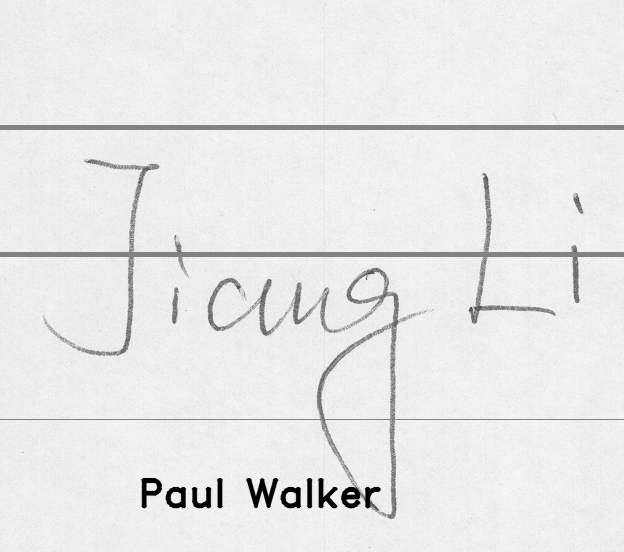 Jiang Li
Paul Walker